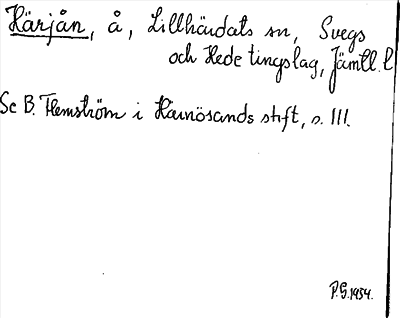 Härjån, å, Lillhärdals sn, Svegs
och Hede tingslag, Jämtl. l
Se B. Flemström i Härnösands stift, s. 111.
P.G. 1954.